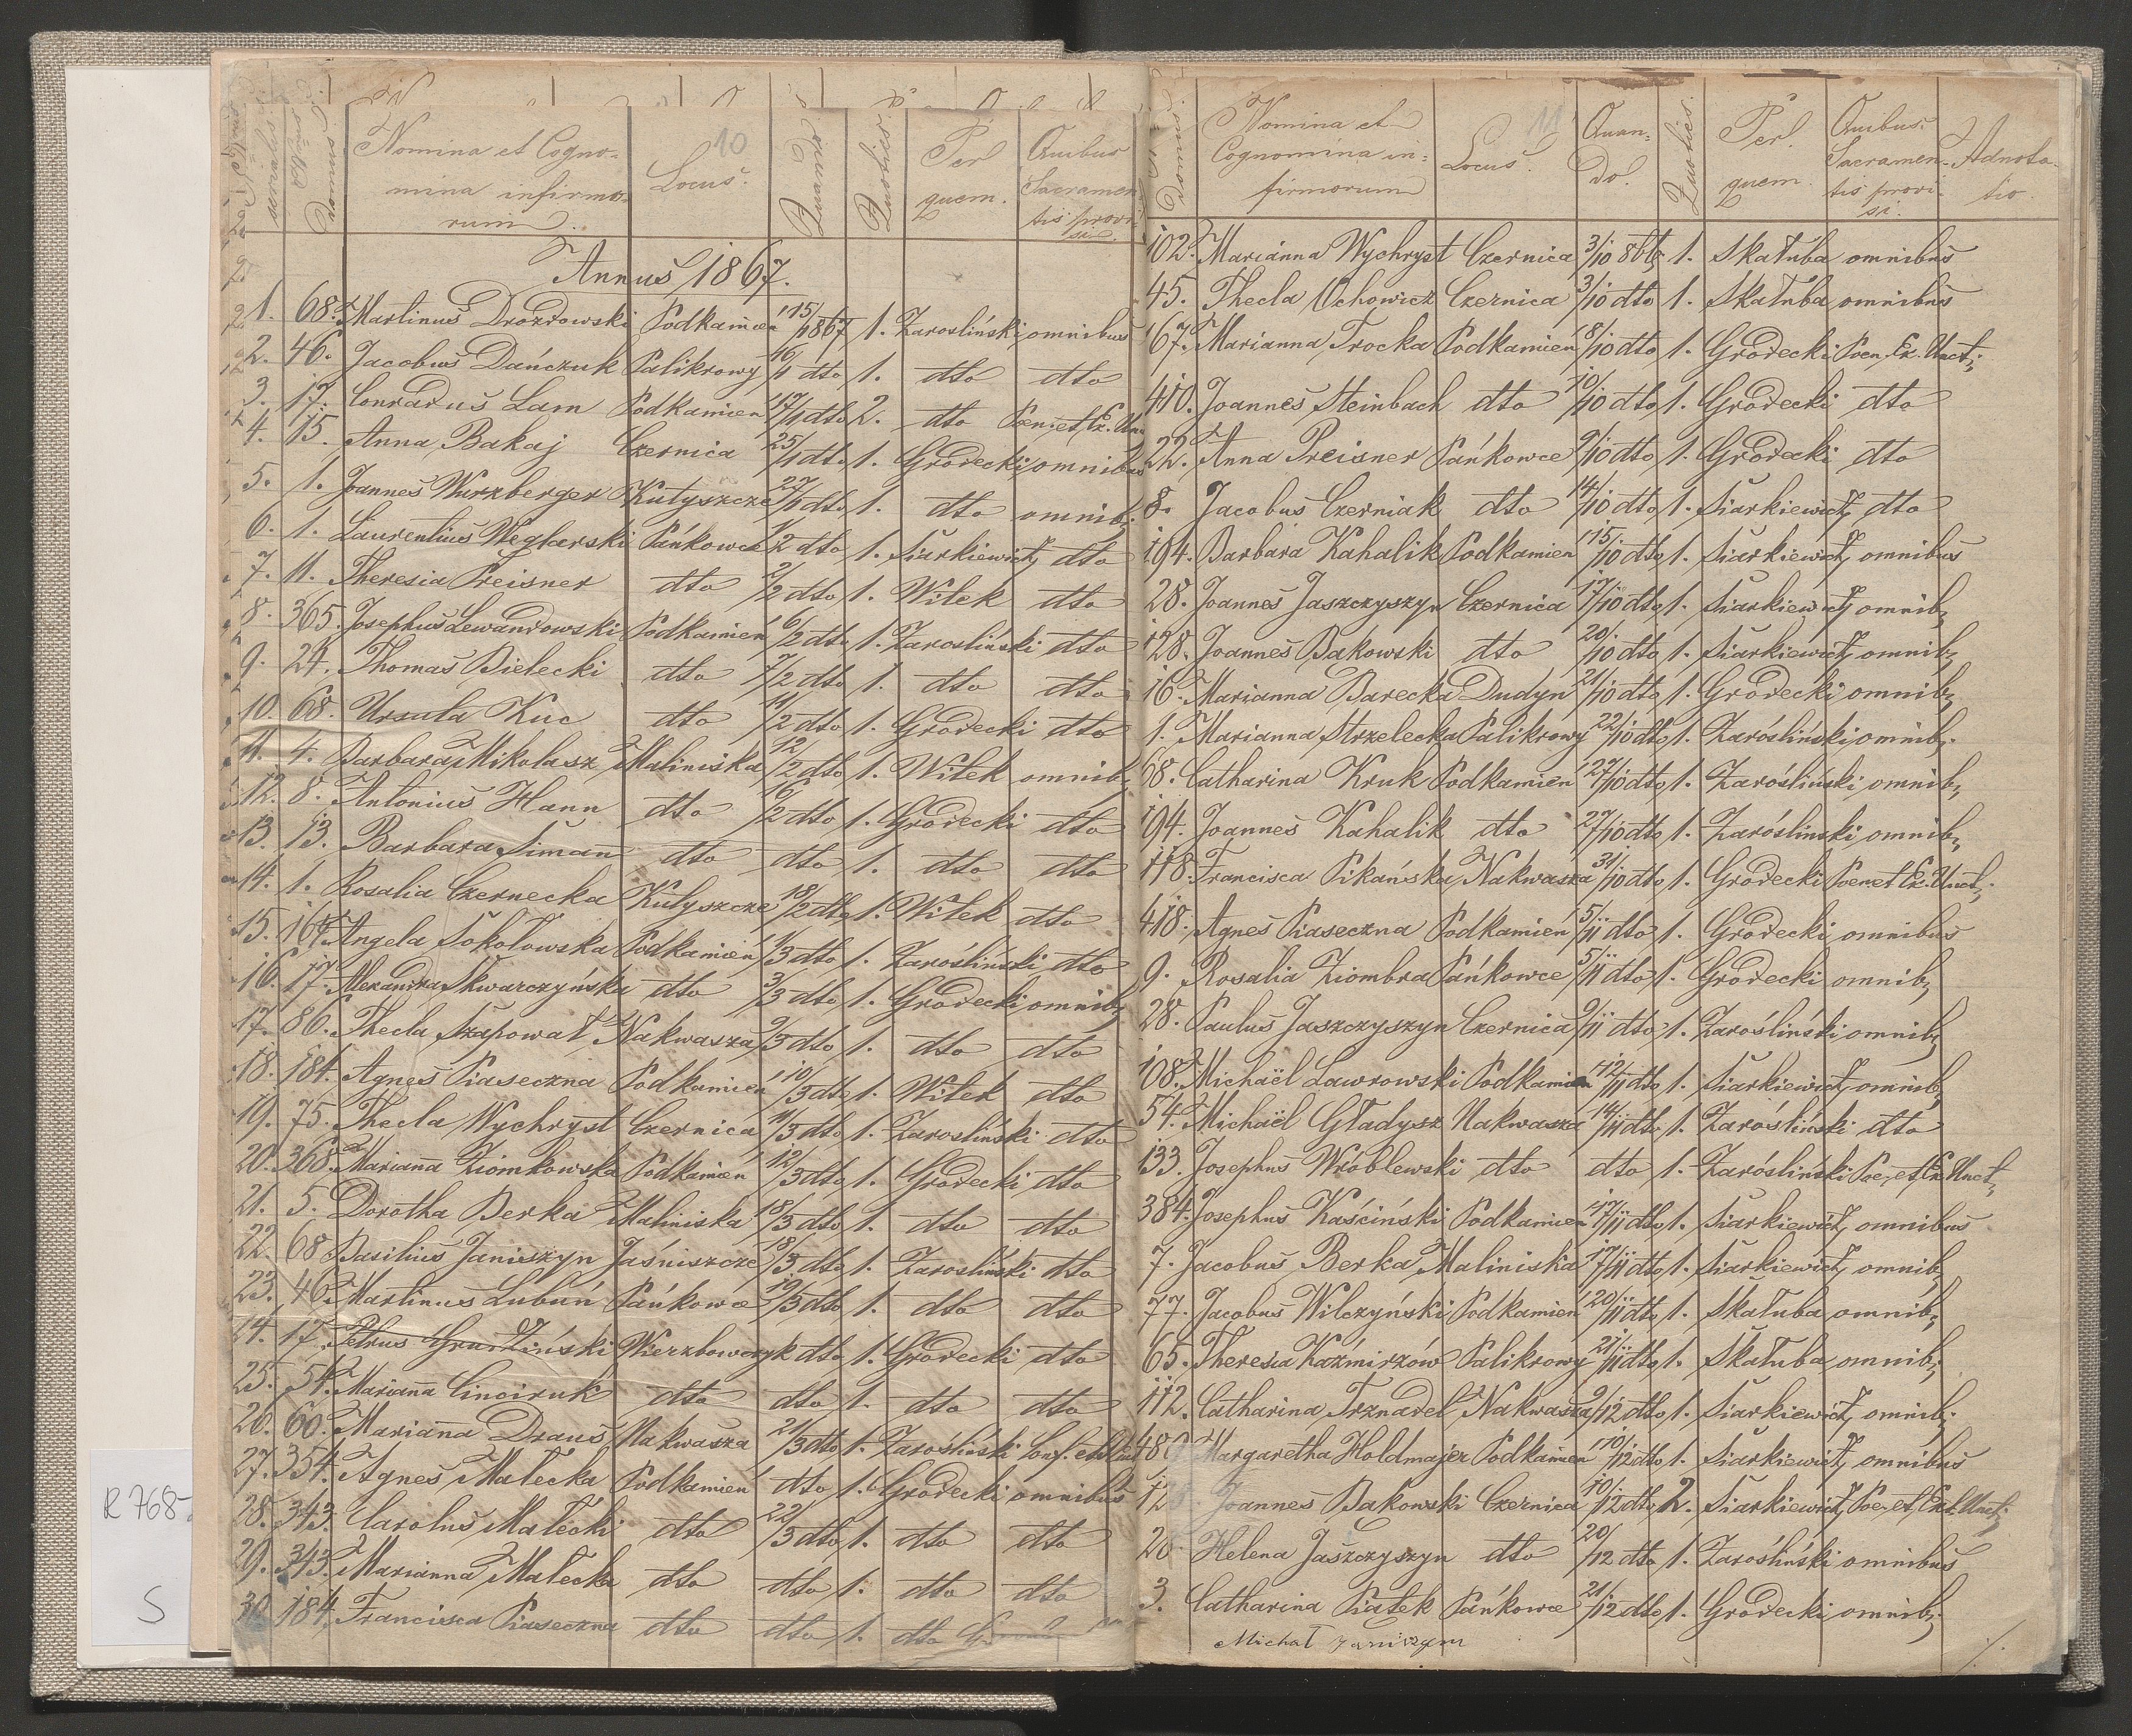 10
serialis
domus
Nomina et Cogno-
mina infirmo-
rum.
Locus.
Quando
Quoties
Per
quem.
Quibus
Sacramen
tis provi
si.
Annus 1867.
1. 68. Martinus Drozdowski Podkamien 15/1 1867 1. Zarosliński omnibus
2. 46. Jacobus Dańczuk Palikrowy 16/1 dto 1. dto dto
3. 17. Conradus Lam Podkamien 17/1 dto 2. dto Poen. et Ex. Un
4. 15. Anna Bakaj Czernica 25/1 dto 1. Grodecki omnibus
5. 1. Joannes Wurzberger Kutyszcze 27/1 dto 1. dto omnib;
6. 1. Laurentius Weglarski Pańkowce 1/2 dto 1. Siarkiewicz dto
7. 11. Theresia Preisner dto 2/2 dto 1. Witek dto
8. 365. Josephus Lewandowski Podkamien 6/2 dto 1. Zarosliński dto
9. 24. Thomas Bielecki dto 7/2 dto 1. dto dto
10. 68. Ursula Kuc dto 11/2 dto 1. Grodecki dto
11. 4. Barbara Mikolasz Maliniska 12/2 dto 1. Witek omnib;
12. 8. Antonius Hann dto 16/2 dto 1. Grodecki dto
13. 13. Barbara Siman dto dto 1. dto dto
14. 1. Rosalia Czernecka Kutyszcze 18/2 dto 1. Witek dto
15. Angela Sokołowska Podkamień 1/3 dto 1. Zarośliński dto
16. 17. Alexandra Skwarczyńska dto 3/3 dto 1. Grodecki omnib;
17. 86. Thecla Szapował Nakwasza 9/3 dto 1. dto dto
18. 184. Agnes Piaseczna Podkamien 10/3 dto 1. Witek dto
19. 75. Thecla Wychryst Czernica 11/3 dto 1. Zarosliński dto
20. 368. Marianna Ziomkowska Podkamien 12/3 dto 1. Grodecki dto
21. 5. Dorotha Berka Maliniska 18/3 dto 1. dto dto
22. 68 Basilius Janiszyn Jaśniszcze 18/3 dto 1. Zarosliński dto
23. 46. Martinus Lubuń Pańkowce 19/3 dto 1. dto dto
24. 17. Petrus Grudziński Wierzbowczyk dto 1. Grodecki dto
25. 54. Marianna Cinciruk dto dto 1. dto dto
26. 60. Marianna Draus Nakwasza 21/3 dto 1. Zarośliński Conf. et
27. 354. Agnes Małecka Podkamien dto 1. Grodecki omnibus
28. 343. Carolus Małecki dto 22/3 dto 1. dto dto
29. 343. Marianna Małecka dto dto 1. dto dto
30. 184. Francisca Piaseczna dto dto 1. dto
R 768
S
11
Domus
Nomina et
Cognomina in-
firmorum
Locus.
Quan-
do.
Quoties.
Per
quem.
Quibus
Sacramen-
tis provi-
si.
Adnota-
tio.
102. Marianna Wychryst Czernica 3/10 8bb; 1. Skałuba omnibus
45. Thecla Ochowicz Czernica 3/10 dto 1. Skałuba omnibus
67. Marianna Trocka Podkamien 8/10 dto 1. Grodecki Poen. Ex. Unct;
410. Joannes Steinbach dto 10/10 dto 1. Grodecki dto
22. Anna Preisner Pańkowce 9/10 dto 1. Grodecki dto
8. Jacobus Czerniak dto 14/10 dto 1. Siarkiewicz dto
194. Barbara Kahalik Podkamien 15/10 dto 1. Siarkiewicz omnibus
28. Joannes Jaszczyszyn Czernica 17/10 dto 1. Siarkiewicz omnib;
128. Joannes Bakowski dto 20/10 dto 1. Siarkiewicz omnib;
16. Marianna Barecka Dudyn 21/10 dto 1. Grodecki omnib;
1. Marianna Strzelecka Palikrowy 22/10 dto 1. Zarośliński omnib;
68. Catharina Kruk Podkamien 27/10 dto 1. Zarośliński omnib;
194. Joannes Kahalik dto 27/10 dto 1. Zarośliński omnib;
118. Francisca Pikańska Nakwasza 31/10 dto 1. Grodecki Poen. et Ex. Unct;
418. Agnes Piaseczna Podkamien 5/11 dto 1. Grodecki omnibus
9. Rosalia Ziombra Pańkowce 5/11 dto 1. Grodecki omnib;
28. Paulus Jaszczyszyn Czernica 9/11 dto 1. Zarośliński omnib;
108. Michaël Lawrowski Podkamien 12/11 dto 1. Siarkiewicz omnib;
54. Michaël Gładysz Nakwasza 14/11 dto 1. Zarośliński dto
133. Josephus Wróblewski dto dto 1. Zarośliński Poe, et Ex Unct;
384. Josephus Kaściński Podkamien 17/11 dto 1. Siarkiewicz omnibus
7. Jacobus Berka Maliniska 17/11 dto 1. Siarkiewicz omnib;
77. Jacobus Wilczyński Podkamien 20/11 dto 1. Skałuba omnib;
65. Theresia Kaźmirzów Palikrowy 21/11 dto 1. Skałuba omnib;
112. Catharina Trznadel Nakwasza 9/12 dto 1. Siarkiewicz omnib;
Margaretha Holdmajer Podkamien 10/12 dto 1. Siarkiewicz omnibus
Joannes Bakowski Czernica 10/12 dto 2. Siarkiewicz Poe, et Ext. Unct;
28 Helena Jaszczyszyn dto 20/12 dto 1. Zarośliński omnibus
3. Catharina Piątek Pańkowce 21/12 dto 1. Grodecki omnib;
Michał Janiszyn